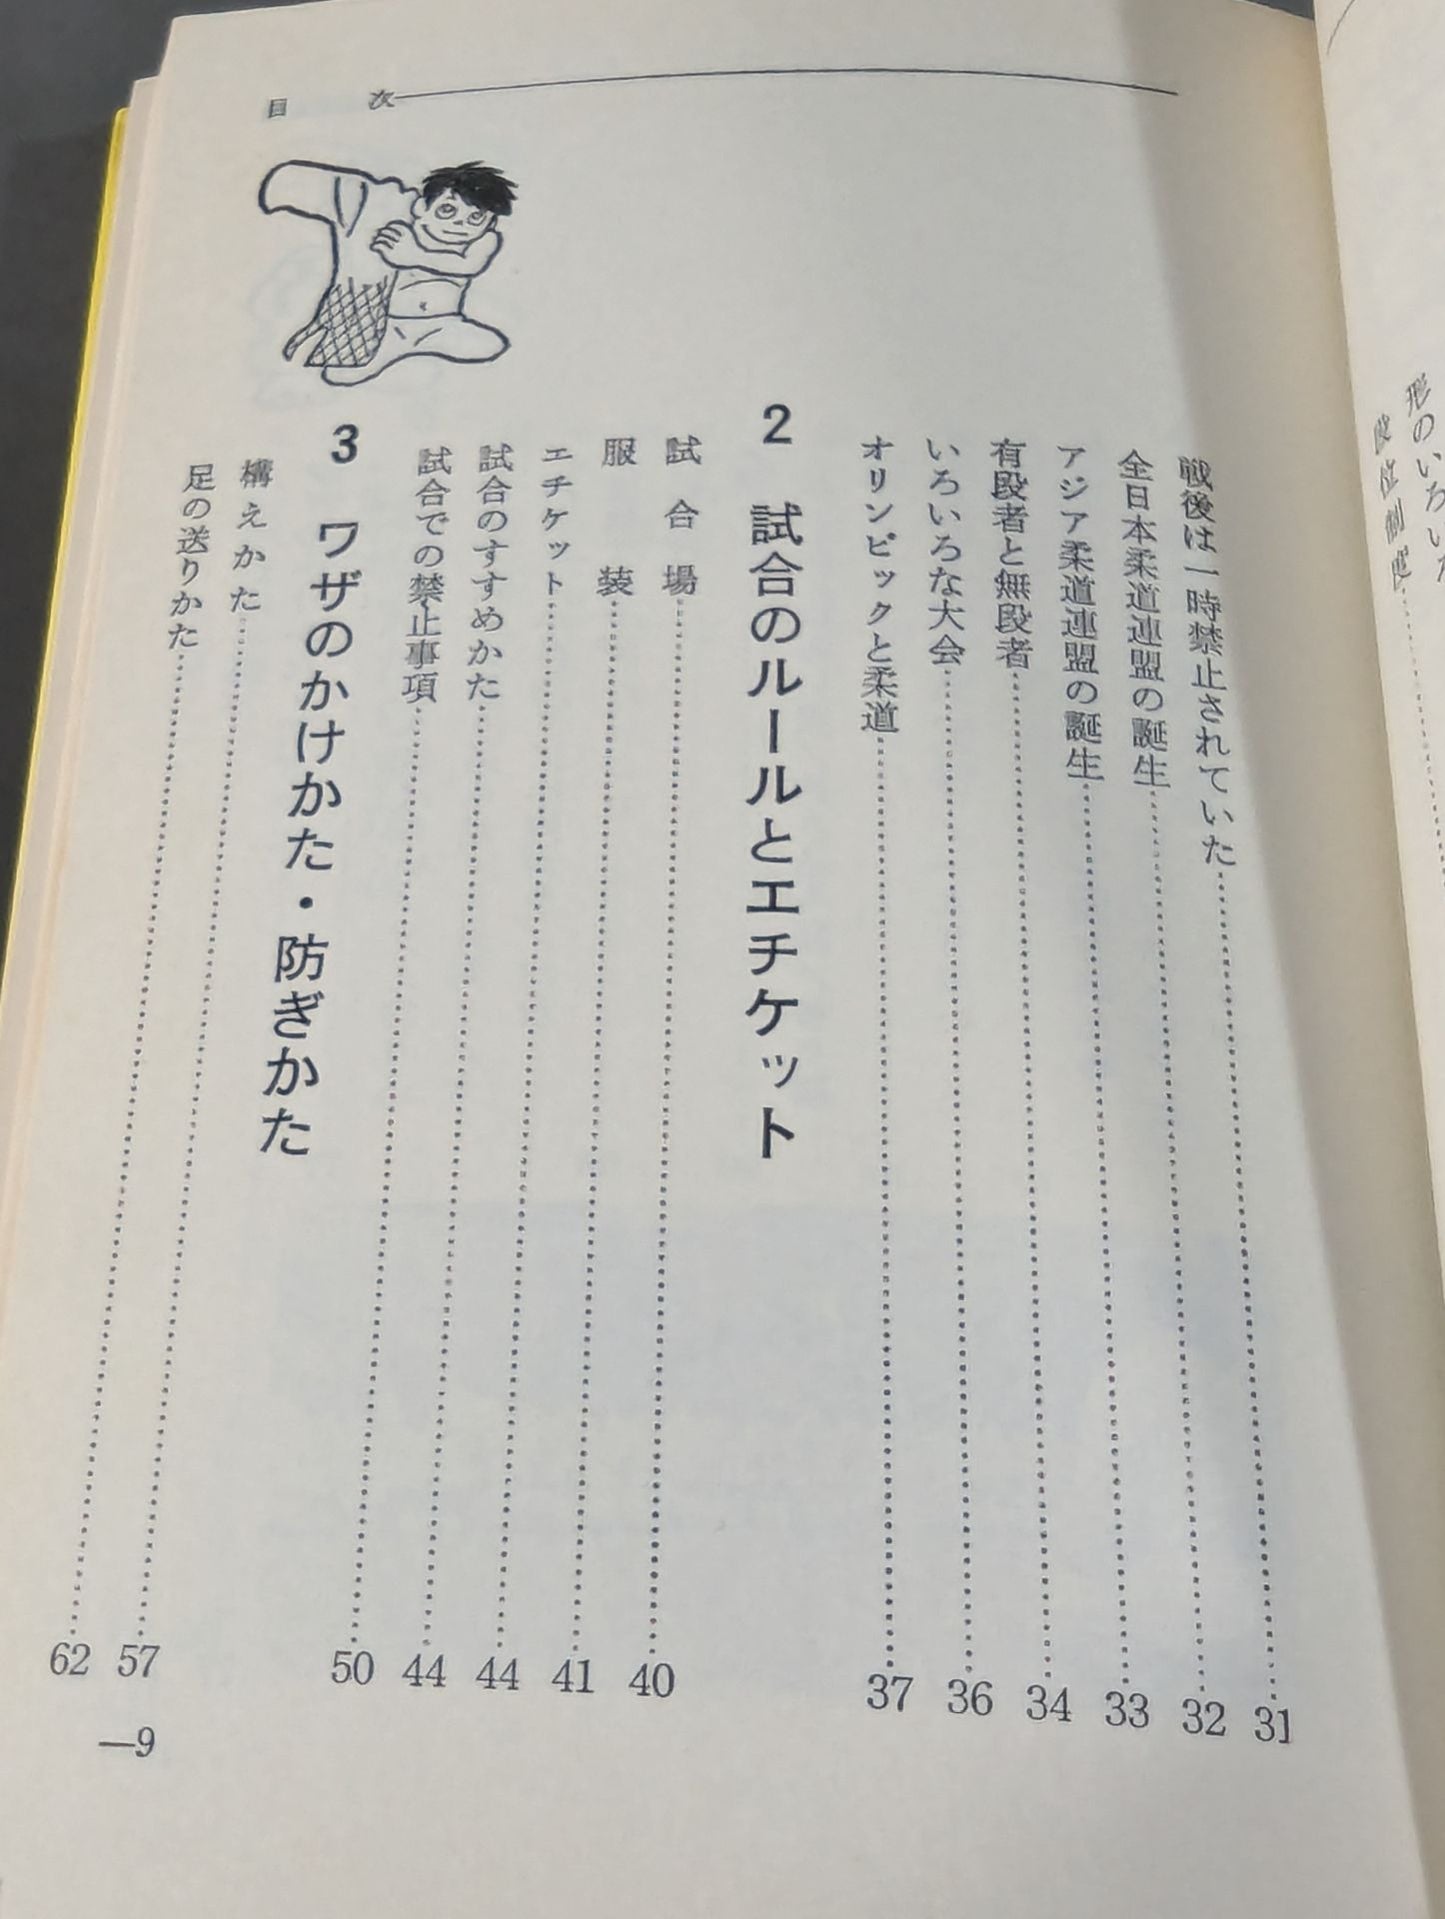 形のいろい
段位制度
目次
戦後は一時禁止されていた 31
全日本柔道連盟の誕生 32
アジア柔道連盟の誕生 33
有段者と無段者 34
いろいろな大会 36
オリンピックと柔道 37
2 試合のルールとエチケット
試合場 40
服装 41
エチケット 44
試合のすすめかた 44
試合での禁止事項 50
3 ワザのかけかた・防ぎかた
構えかた 57
足の送りかた 62
—9